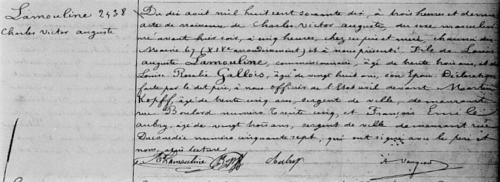 Lamouline 2438
Charles Victor auguste
Du dix août mil huit cent soixante dix, à trois heures et demie
acte de naissance de Charles Victor auguste, du sexe masculin,
né avant hier soir, à cinq heures, chez ses père et mère, chaussée du
Maine 67 (XIVe arrondissement) et à nous présenté. Fils de Louis
auguste Lamouline, commissionnaire, âgé de trente trois ans, et de
Louise Rosalie Gallois, âgée de vingt huit ans, son épouse. Déclaration
faite par le dit père, à nous officier de l'État civil devant Martin
Kopff, âgé de trente cinq, sergent de ville, demeurant
rue Boulard numéro trente cinq, et François Emile
aubry, âgé de vingt trois ans, sergent de ville demeurant rue
numéro cinquante sept, qui ont signé avec le père et
nous, après lecture.
Lamouline Aubry